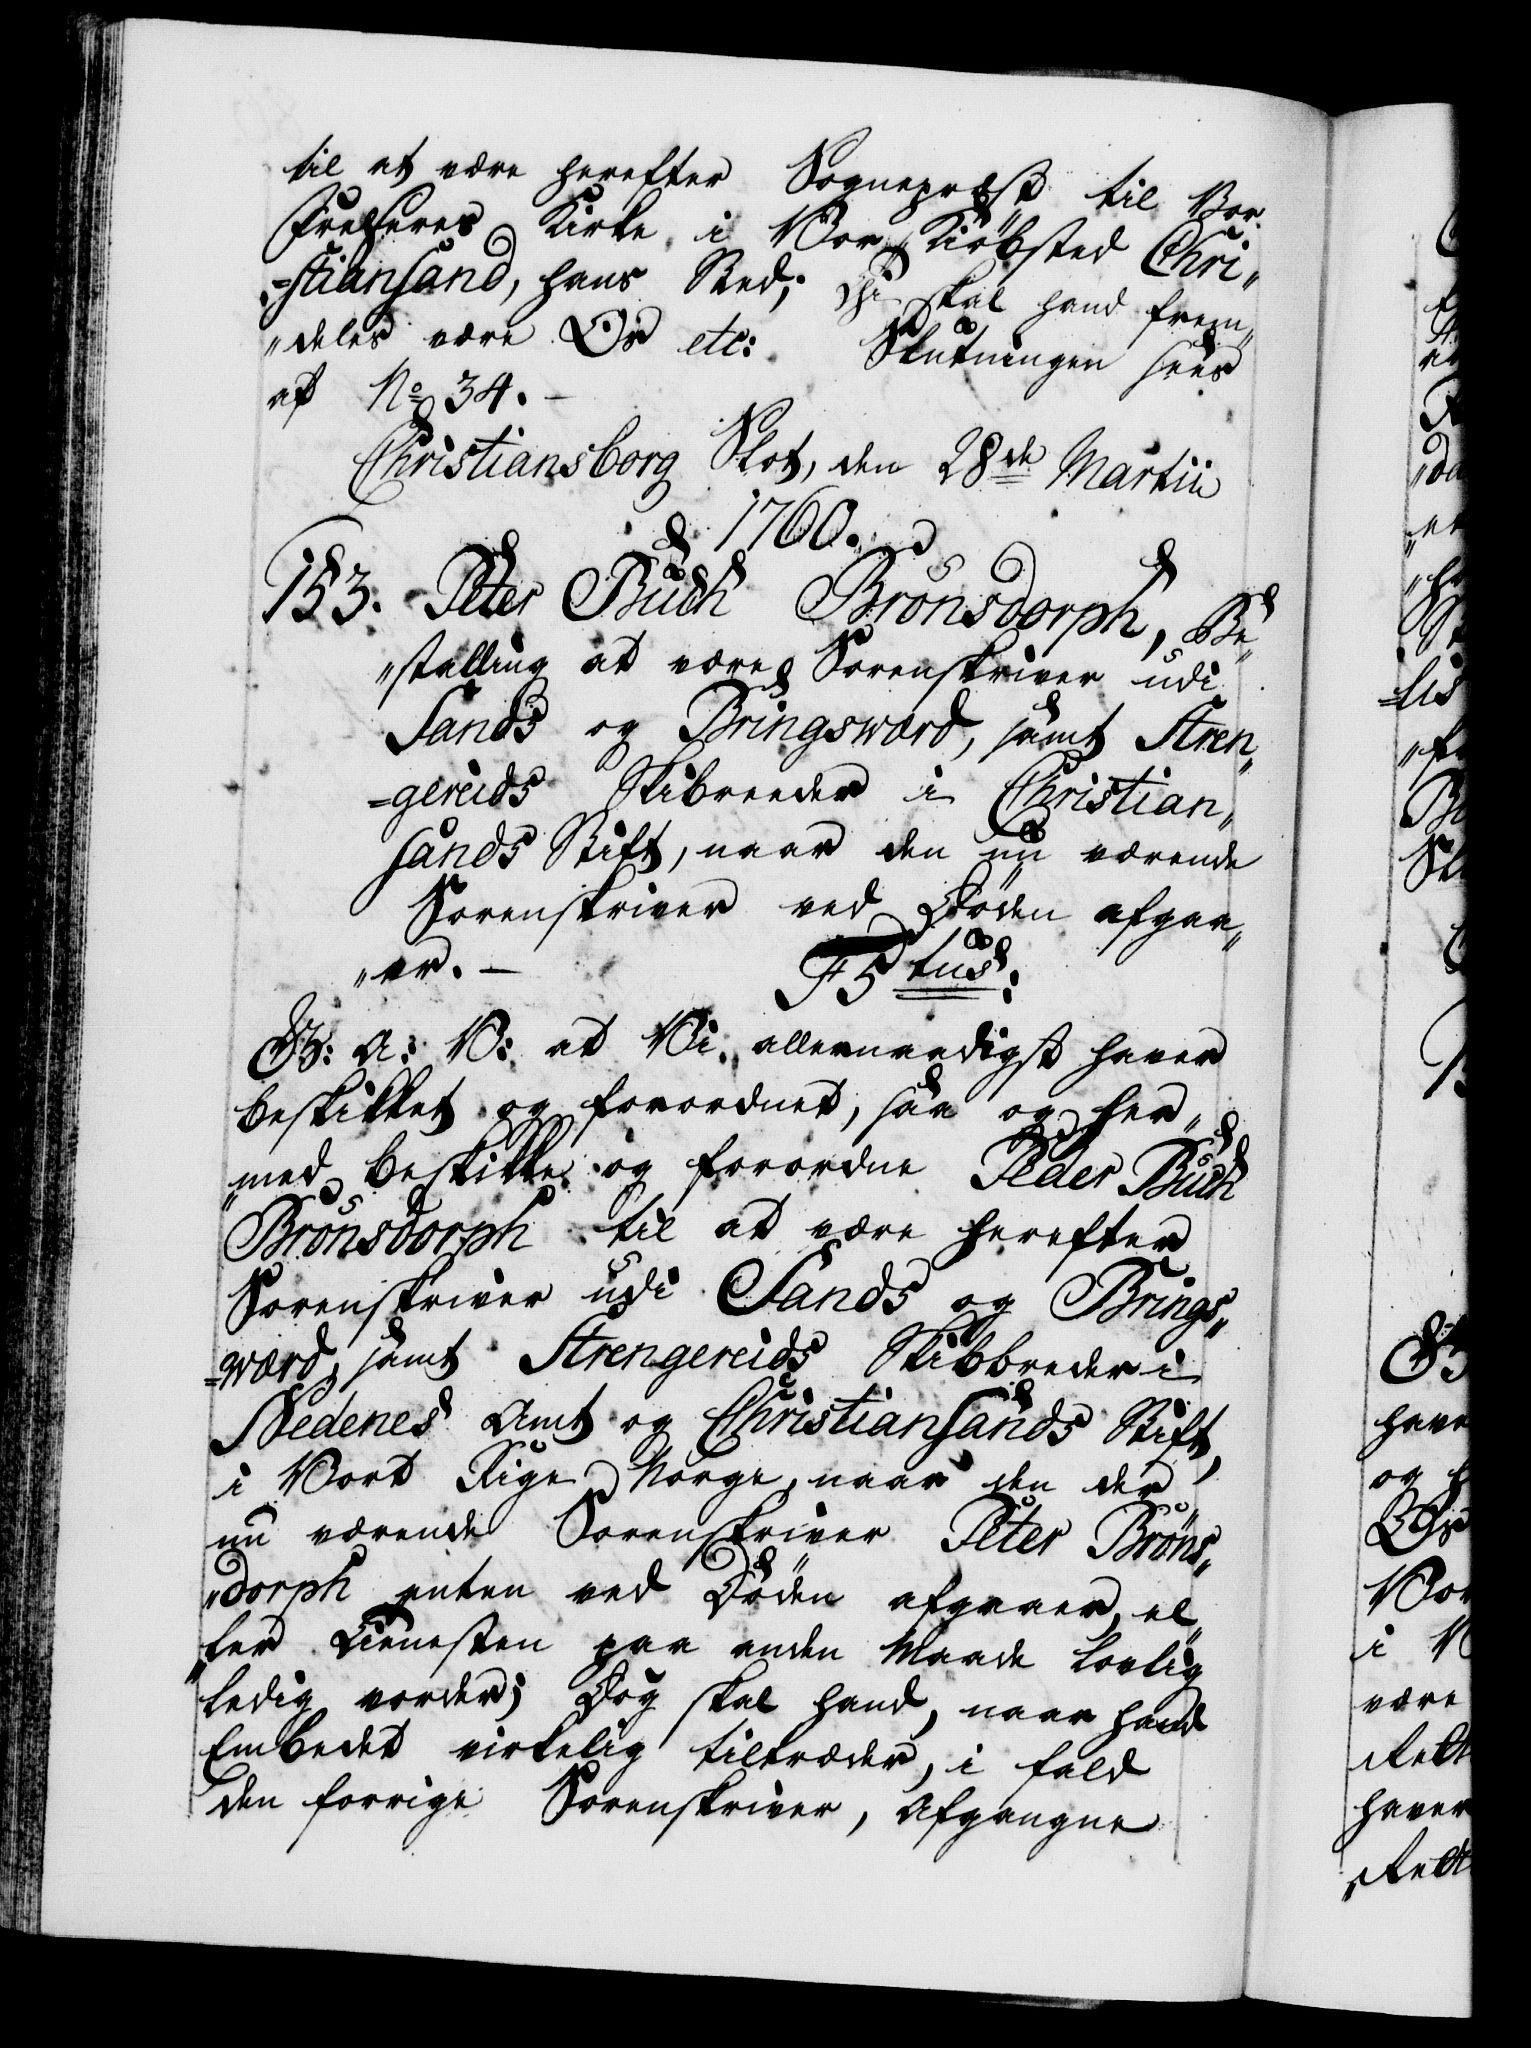 til at være herefter Sognepræst til Vor
Frelseres Kirke i Vor Kiöbsted Chri„
=stiansand, hans Sted; Thi skal hand frem„
„deles være Os etc: Slutningen sees
af No 34. –
Christiansborg Slot, den 28de Martii
1760.
153. Peter Buch Brönsdorph, Be„
„stalling at være Sorenskriver udi
Sands og Bringsværd, samt Stren„
=gereids Skibreeder i Christian„
sands Stift, naar den nu værende
Sorenskriver ved Döden afgaa„
„er. – F5tus:
G: A: V: at Vi allernaadigst haver
beskikket og forordnet, saa og her„
„med beskikke og forordne Peder Buch
Brönsdorph til at være herefter
Sorenskriver udi Sands og Brings„
=værd, samt Strengereids Skibbreder i
Nedenes Amt og Christiansands Stift,
i Vort Rige Norge, naar den der
nu værende Sorenskriver Peter Bröns„
„dorph enten ved Döden afgaaer, el„
„ler Tienesten paa anden Maade lovlig
ledig vorder; Dog skal hand, naar hand
Embedet virkelig tiltræder, i fald
den forrige Sorenskriver, Afgangne